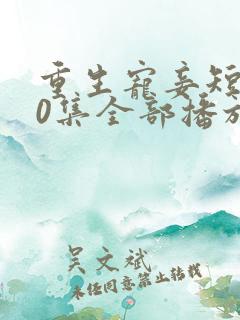 重生宠妾短
0集全部播放
吴文斌
未经同意禁止转载